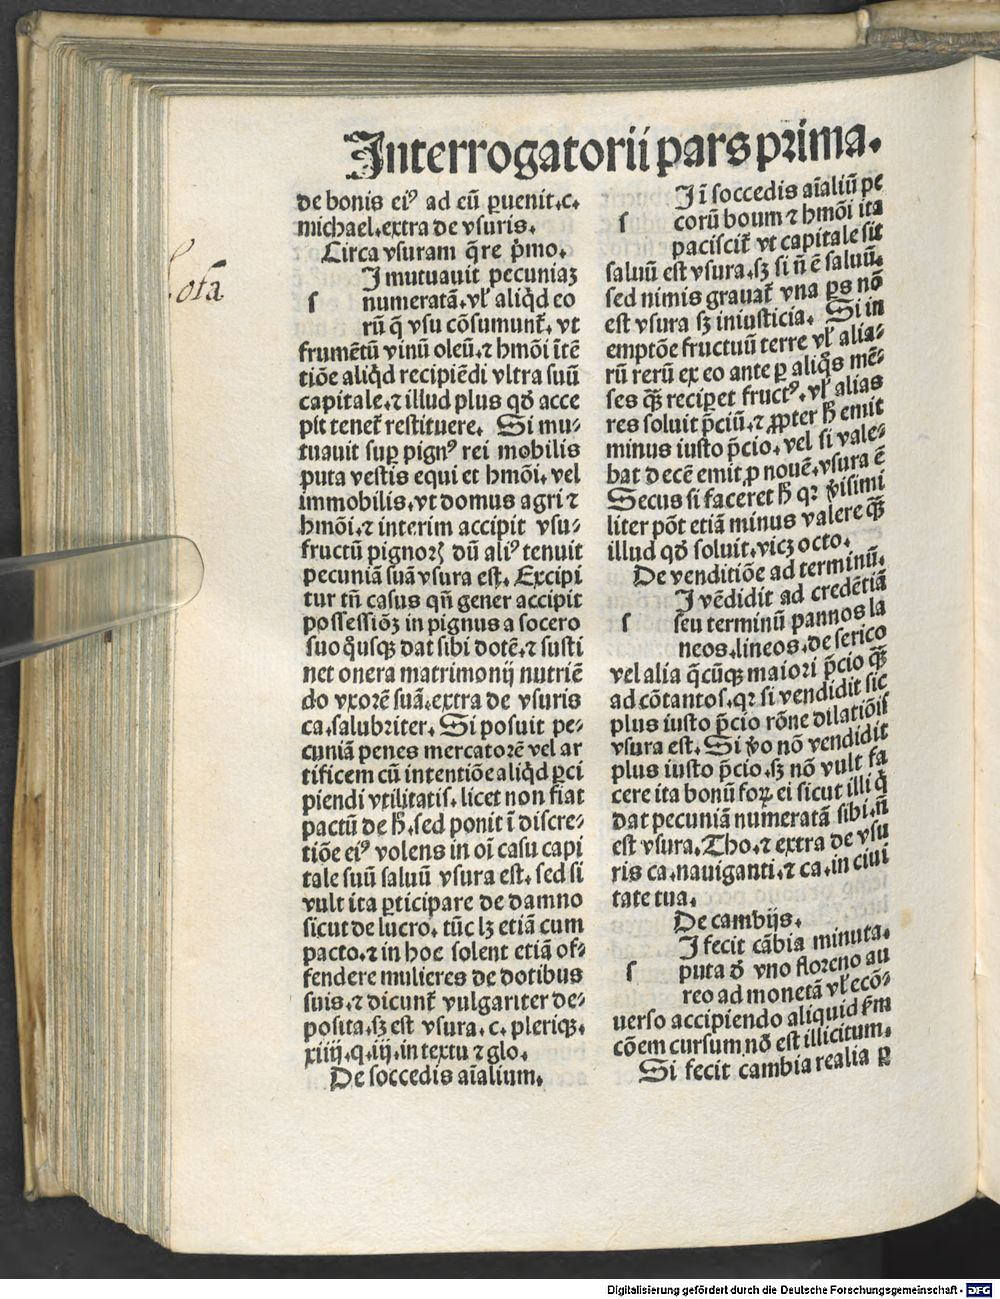 Interrogatorii pars prima.
de bonis eiꝰ ad eū ꝑuenit.c.
michael.extra de vsuris.
Circa vsuram q̄re p̄mo.
I mutuauit pecuniaꝫ
s numeratā.vl' aliqd̄ eo
rū q̄ vsu cōsumunt̄.vt
frumētū vinū oleū.⁊ hmōi ītē
tiōe aliqd̄ recipiēdi vltra suū
capitale.⁊ illud plus qd̄ acce
pit tenet̄ restituere. Si mu-
tuauit suꝑ pignꝰ rei mobilis
puta vestis equi et hmōi.vel
immobilis.vt domus agri ⁊
hmōi.⁊ interim accipit vsu-
fructū pignorꝝ dū aliꝰ tenuit
pecuniā suā vsura est. Excipi
tur tn̄ casus qn̄ gener accipit
possessiōꝫ in pignus a socero
suo quousqꝫ dat sibi dotē.⁊ susti
net onera matrimonij nutriē
do vxorē suā.extra de vsuris
ca.salubriter. Si posuit pe-
cuniā penes mercatorē vel ar
tificem cū intentiōe aliqd̄ ꝑci
piendi vtilitatis.licet non fiat
pactū de h̄.sed ponit ī discre-
tiōe eiꝰ volens in oī casu capi
tale suū saluū vsura est.sed si
vult ita ꝑticipare de damno
sicut de lucro.tūc lꝫ etiā cum
pacto.⁊ in hoc solent etiā of-
fendere mulieres de dotibus
suis.⁊ dicunt̄ vulgariter de-
posita.sꝫ est vsura.c.pleriqꝫ.
xiiij.q.iij.in textu ⁊ glo.
De soccedis aīalium.
I ī soccedis aīaliū pe
s corū boum ⁊ hmōi ita
paciscit̄ vt capitale sit
saluū est vsura.sꝫ si n̄ ē saluū.
sed nimis grauat̄ vna ꝑs nō
est vsura sꝫ iniusticia. Si in
emptōe fructuū terre vl' alia-
rū rerū ex eo ante ꝑ aliqs mē-
ses qꝫ reciꝑet fructꝰ.vl' alias
res soluit p̄ciū.⁊ ꝓpter h̄ emit
minus iusto p̄cio.vel si vale-
bat decē emit ꝓ nouē.vsura ē
Secus si faceret h̄ qꝛ v̄isimi
liter pōt etiā minus valere qꝫ
illud qd̄ soluit.vicꝫ octo.
De venditiōe ad terminū.
I vēdidit ad credētiā
s seu terminū pannos la
neos.lineos.de serico
vel alia q̄cūqꝫ maiori p̄cio qꝫ
ad cōtantos.qꝛ si vendidit sic
plus iusto p̄cio rōne dilatiōis
vsura est. Si v̄o nō vendidit
plus iusto p̄cio.sꝫ nō vult fa
cere ita bonū forꝝ ei sicut illi q̄
dat pecuniā numeratā sibi.n̄
est vsura.Tho.⁊ extra de vsu
ris ca.nauiganti.⁊ ca.in ciui
tate tua.
De cambijs.
I fecit cābia minuta.
s puta d̄ vno floreno au
reo ad monetā vl' ecō-
uerso accipiendo aliquid f̄m
cōem cursum nō est illicitum.
Si fecit cambia realia ꝑ
Nota
Digitalisierung gefördert durch die Deutsche Forschungsgemeinschaft - DFG